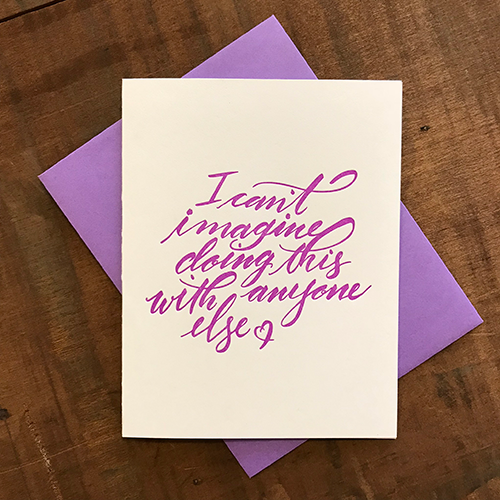 I can't
imagine
doing this
with anyone
else